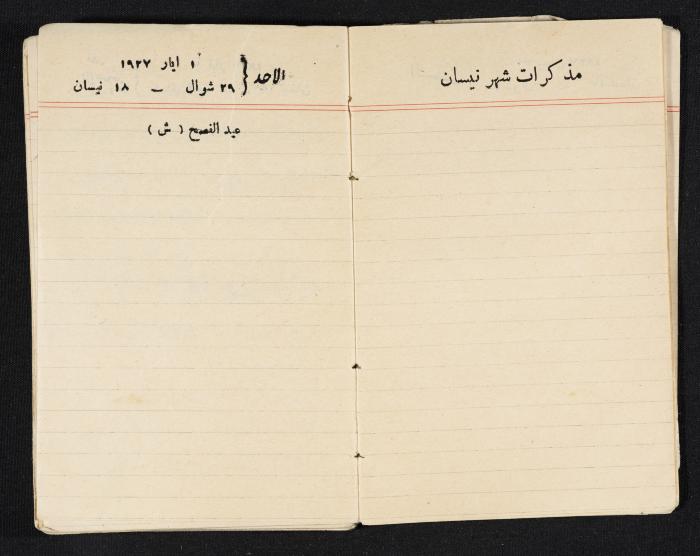 مذكرات شهر نيسان
الاحد { ١ ايار ١٩٢٧
٢٩ شوال – ١٨ نيسان
عيد الفصح ( ش )